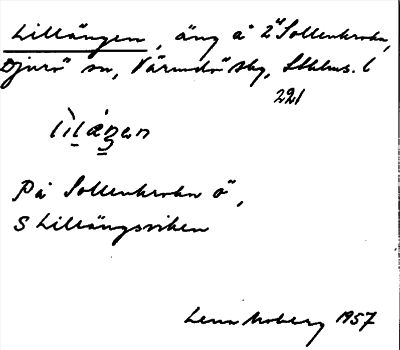 Lillängen, äng å 2 Sollenkroka,
Djurö sn, Värmdö skg, Sthlms. l
221
lìlǽŋən
På Sollenkroka ö,
S Lillängsviken
Lena Moberg 1957